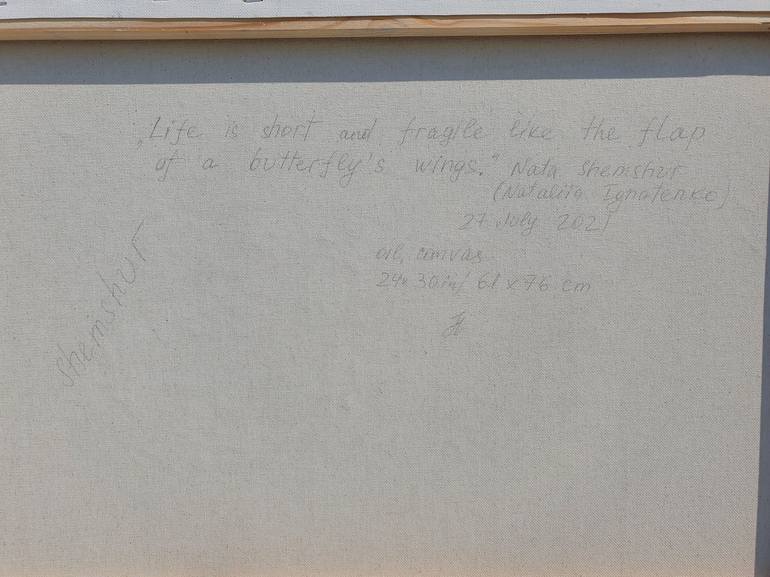 „Life is short and fragile like the flap
of a butterfly's wings." Nata Shemshur
(Nataliia Ignatenko)
27 July 2021
oil, canvas
24x30in/ 61x76 cm
Shemshur